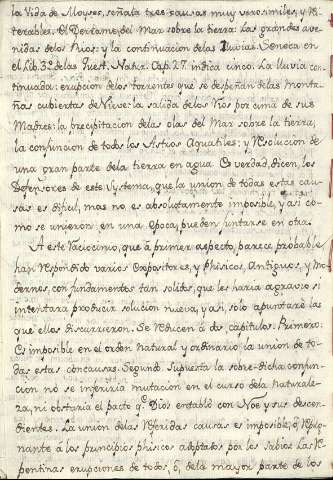 la Vida de Moyses, señala tres causas muy verosimiles, y Ri-
terables. El Derrame del Mar sobre la tierra: Las grandes ave-
nidas de los Rios: y la continuacion de las lluvias. Seneca en
el Lib. 3º de las Quest. Natur. Cap. 27 indica cinco. La lluvia con-
tinuada: erupcion de los torrentes que se despeñan de las Monta-
ñas cubiertas de Nieve: la salida de los Rios por cima de sus
Madres: la precipitacion de las olas del Mar sobre la tierra,
la conjuncion de todos los Astros Aquatiles: y Resolucion de
una gran parte de la tierra en agua. Es verdad, dicen, los
Defensores de este Systema, que la union de todas estas cau-
sas es dificil, mas no es absolutamente imposible, y asi co-
mo se unieron en una epoca, pueden juntarse en otra.
A este Raciocinio, que á primer aspecto, parece probable,
han Respondido varios Expositores, y Phisicos, Antiguos, y Mo-
dernos, con fundamentos tan solidos, que les haria agravio si
intentara producir solucion nueva, y asi solo apuntaré las
que ellos discurrieron. Se Reducen á dos capitulos. Primero:
Es imposible en el orden natural y ordinario la union de to-
das estas concausas. Segundo: Supuesta la sobre-dicha conjun-
cion no se inferiria mutacion en el curso de la naturale-
za, ni obstaria el pacto qe. Dios entabló con Noe y sus decen-
dientes. La union de las Referidas causas es imposible, ó Repug-
nante á los principios phisicos adoptados por los sabios. Las Re-
pentinas erupciones de todos, ó, de la mayor parte de los